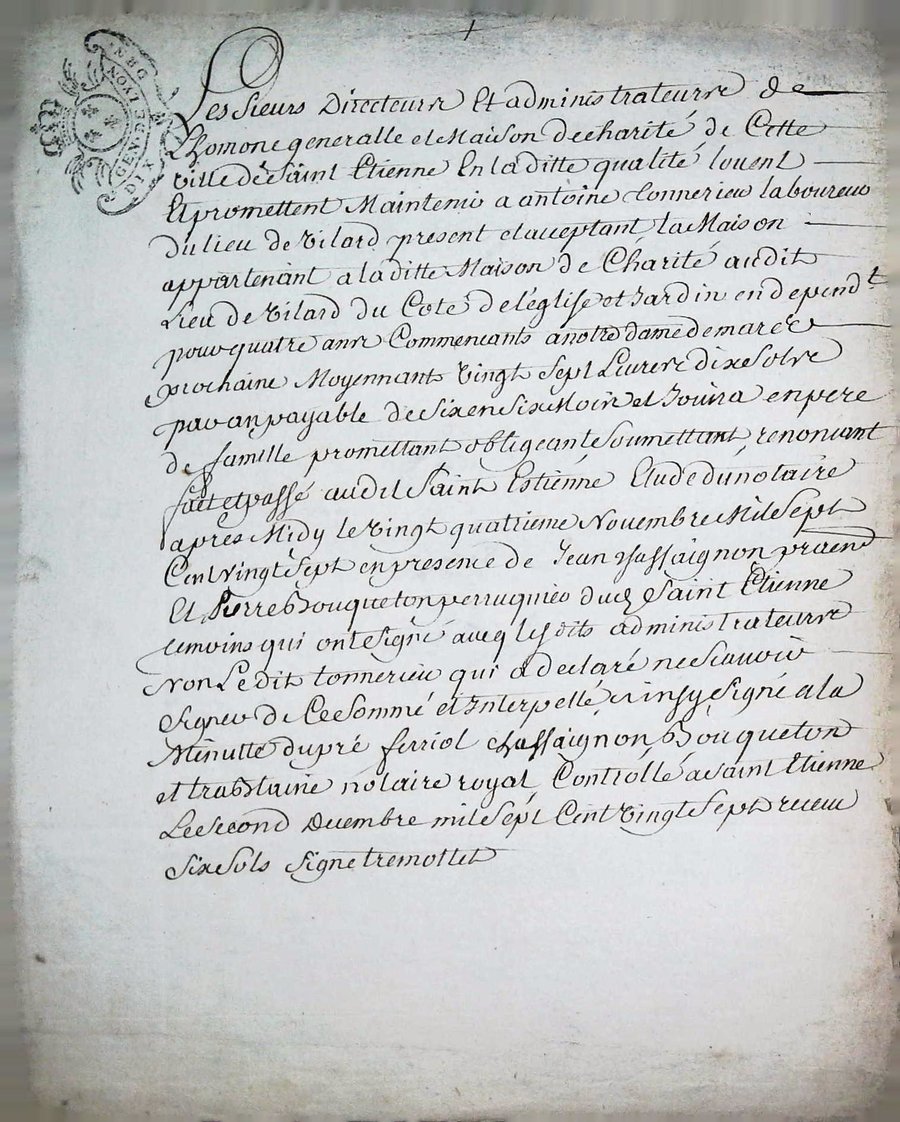 GEN. DE LYON
DIX DEN.
Les Sieurs Directeurs Et administrateurs de
Lhomone generalle et Maison de charité de Cette
ville de Saint Etienne En laditte qualité louent
Et promettent Maintenir a antoine tonnerieu laboureur
du lieu de vilard present et acceptant la Maison
appartenant a laditte Maison de Charité audit
Lieu de vilard du Coté de l'église et Jardin en dependt
pour quatre ans Commencants a notre dame de mars
prochaine Moyennant vingt Sept Livres dix Sols
par an payable de Six en Six Mois et Jouira en pere
de famille promettant obligeant Soumettant renoncant
fait et passé audit Saint Estienne Etude du notaire
apres Midy le vingt quatrieme Novembre Mil Sept
Cent vingt Sept en presence de Jean Chassaignon
Et Pierre Bouqueton perruquier dud Saint Etienne
temoins qui ont Signé avec lesdits administrateurs
Non Le dit tonnerieu qui a declaré ne Scavoir
Signer de Ce Sommé et Interpellé ainsy Signé a la
Minutte dupré ferriol chassaignon Bouqueton
et notaire royal Controllé a Saint Etienne
Le Second Decembre mil Sept Cent vingt Sept receu
Six Sols Signé tremollet